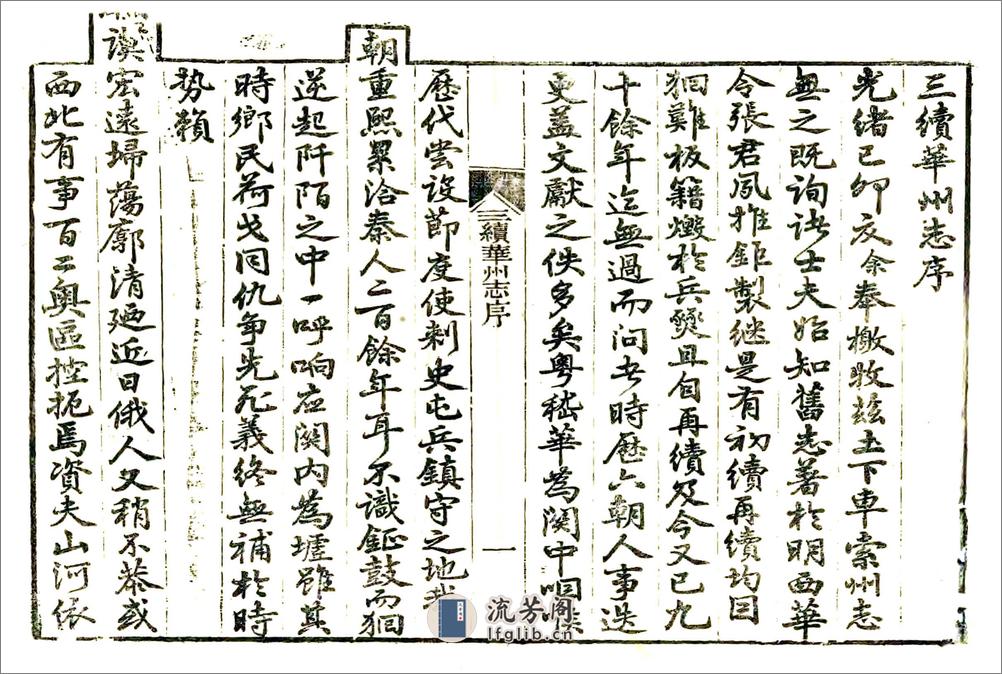 三續華州志序
光緒己卯夏余奉檄牧茲土下車索州志
無之既詢諸士夫始知舊志著於明西華
令張君夙推鉅製繼是有初續再續均因
𤞑難板籍燬於兵燹且自再續及今又已九
十餘年迄無過而問者時歷六朝人事迭
更蓋文獻之佚多矣粵稽華為關中咽喉
三續華州志序 一
歷代嘗設節度使刺史屯兵鎮守之地我
朝重熙累洽秦人二百餘年耳不識鉦鼓而𤞑
逆起阡陌之中一呼响应關內為墟雖其
時鄉民荷戈同仇爭先死義終無補於時
势賴
謨宏遠掃蕩廓清廼近日俄人又稍不恭或
西北有事百二奧區控扼焉資夫山河依
流芳阁
lfglib.cn